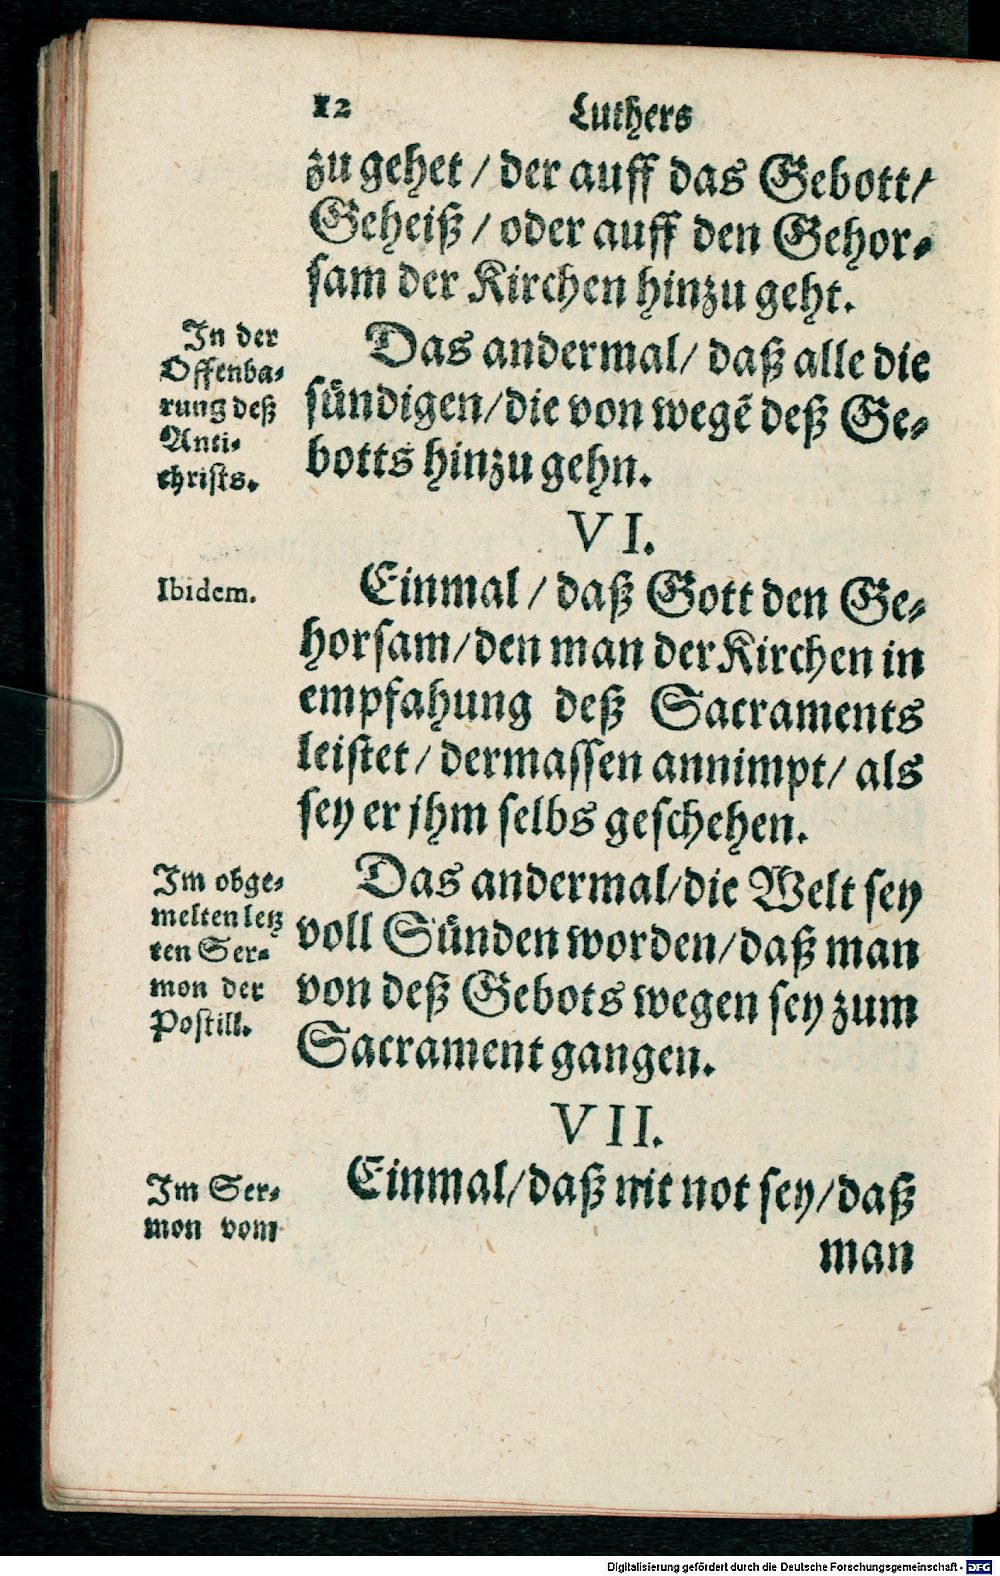 12 Luthers
zu gehet / der auff das Gebott /
Geheiß / oder auff den Gehor⸗
sam der Kirchen hinzu geht.
In der
Offenba⸗
rung deß
Anti⸗
christs.
Das andermal / daß alle die
sündigen / die von wegẽ deß Ge⸗
botts hinzu gehn.
VI.
Ibidem.
Einmal / daß Gott den Ge⸗
horsam / den man der Kirchen in
empfahung deß Sacraments
leistet / dermassen annimpt / als
sey er jhm selbs geschehen.
Im obge⸗
melten letz
ten Ser⸗
mon der
Postill.
Das andermal / die Welt sey
voll Sünden worden / daß man
von deß Gebots wegen sey zum
Sacrament gangen.
VII.
Im Ser⸗
mon vom
Einmal / daß nit not sey / daß
man
Digitalisierung gefördert durch die Deutsche Forschungsgemeinschaft - DFG